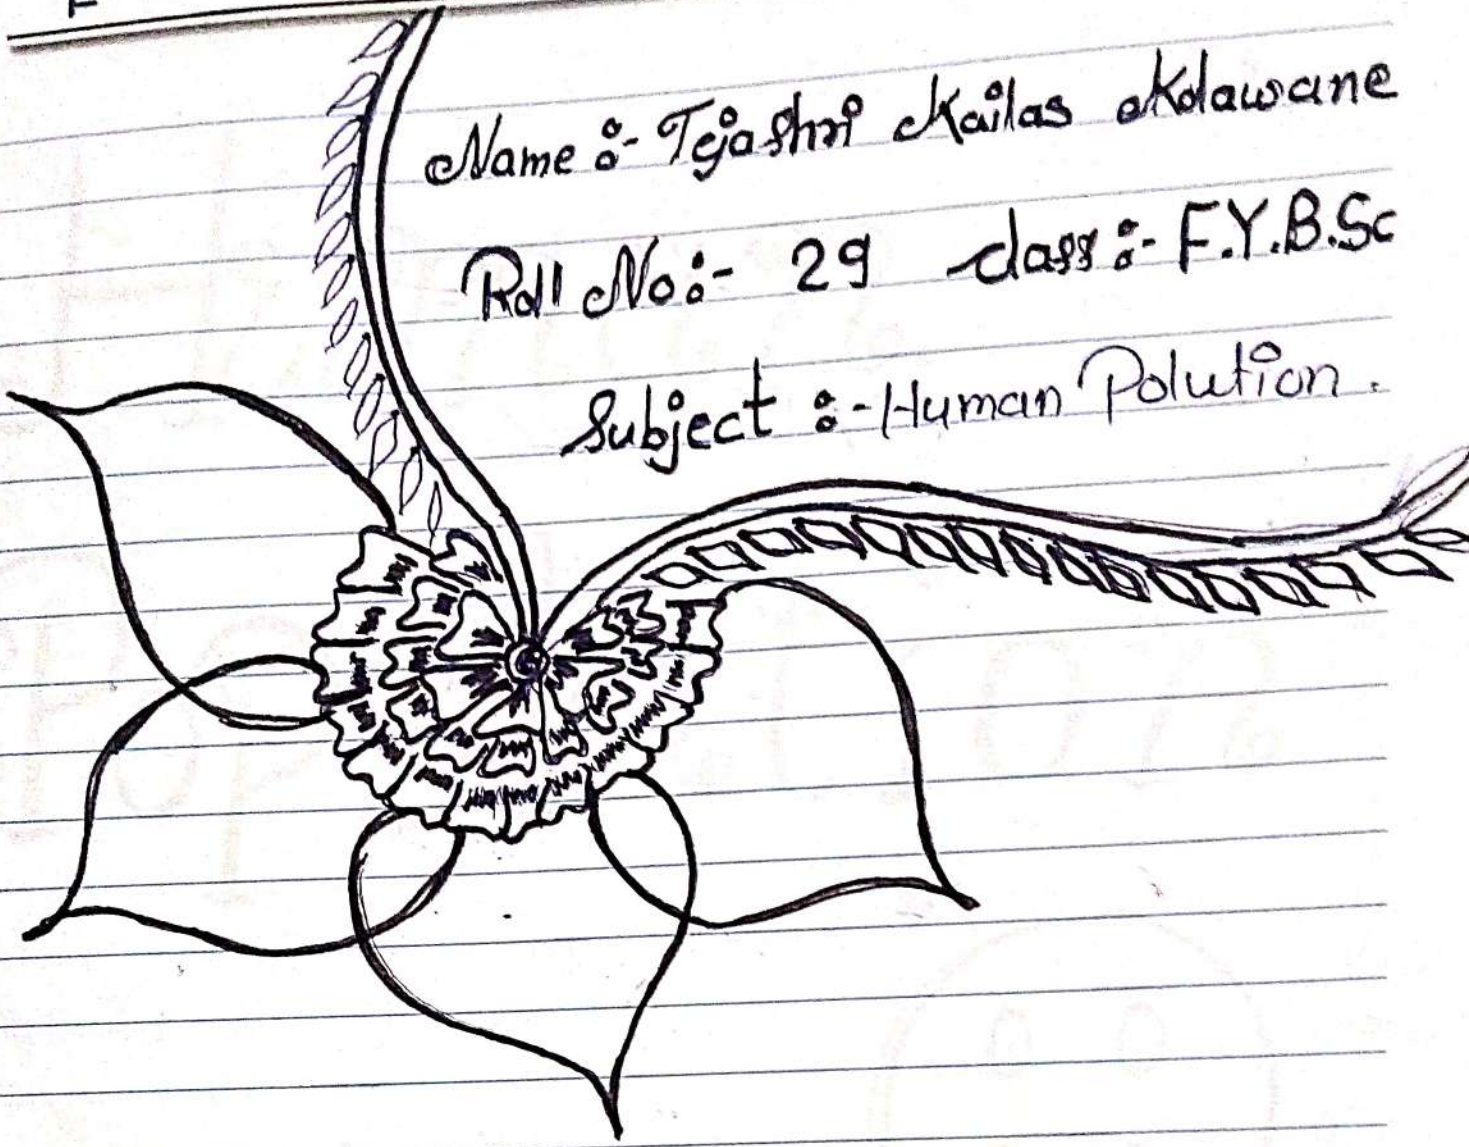 Name :- Tejashri Kailas Kolawane
Roll No:- 29 class :- F.Y.B.Sc
Subject :- Human Polution.